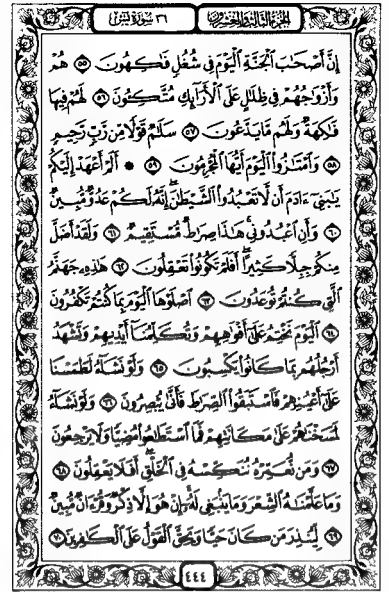 الجزء الثالث والعشرون ٣٦ سورة يس
إِنَّ أَصْحَٰبَ ٱلْجَنَّةِ ٱلْيَوْمَ فِى شُغُلٍ فَٰكِهُونَ ٥٥ هُمْ
وَأَزْوَٰجُهُمْ فِى ظِلَٰلٍ عَلَى ٱلْأَرَآئِكِ مُتَّكِـُٔونَ ٥٦ لَهُمْ فِيهَا
فَٰكِهَةٌ وَلَهُم مَّا يَدَّعُونَ ٥٧ سَلَٰمٌ قَوْلًا مِّن رَّبٍّ رَّحِيمٍ
٥٨ وَٱمْتَٰزُوا۟ ٱلْيَوْمَ أَيُّهَا ٱلْمُجْرِمُونَ ٥٩ ۞ أَلَمْ أَعْهَدْ إِلَيْكُمْ
يَٰبَنِىٓ ءَادَمَ أَن لَّا تَعْبُدُوا۟ ٱلشَّيْطَٰنَ ۖ إِنَّهُۥ لَكُمْ عَدُوٌّ مُّبِينٌ
٦٠ وَأَنِ ٱعْبُدُونِى ۚ هَٰذَا صِرَٰطٌ مُّسْتَقِيمٌ ٦١ وَلَقَدْ أَضَلَّ
مِنكُمْ جِبِلًّا كَثِيرًا ۖ أَفَلَمْ تَكُونُوا۟ تَعْقِلُونَ ٦٢ هَٰذِهِۦ جَهَنَّمُ
ٱلَّتِى كُنتُمْ تُوعَدُونَ ٦٣ ٱصْلَوْهَا ٱلْيَوْمَ بِمَا كُنتُمْ تَكْفُرُونَ
٦٤ ٱلْيَوْمَ نَخْتِمُ عَلَىٰٓ أَفْوَٰهِهِمْ وَتُكَلِّمُنَآ أَيْدِيهِمْ وَتَشْهَدُ
أَرْجُلُهُم بِمَا كَانُوا۟ يَكْسِبُونَ ٦٥ وَلَوْ نَشَآءُ لَطَمَسْنَا
عَلَىٰٓ أَعْيُنِهِمْ فَٱسْتَبَقُوا۟ ٱلصِّرَٰطَ فَأَنَّىٰ يُبْصِرُونَ ٦٦ وَلَوْ نَشَآءُ
لَمَسَخْنَٰهُمْ عَلَىٰ مَكَانَتِهِمْ فَمَا ٱسْتَطَٰعُوا۟ مُضِيًّا وَلَا يَرْجِعُونَ
٦٧ وَمَن نُّعَمِّرْهُ نُنَكِّسْهُ فِى ٱلْخَلْقِ ۖ أَفَلَا يَعْقِلُونَ ٦٨
وَمَا عَلَّمْنَٰهُ ٱلشِّعْرَ وَمَا يَنۢبَغِى لَهُۥٓ ۚ إِنْ هُوَ إِلَّا ذِكْرٌ وَقُرْءَانٌ مُّبِينٌ
٦٩ لِّيُنذِرَ مَن كَانَ حَيًّا وَيَحِقَّ ٱلْقَوْلُ عَلَى ٱلْكَٰفِرِينَ ٧٠
٤٤٤